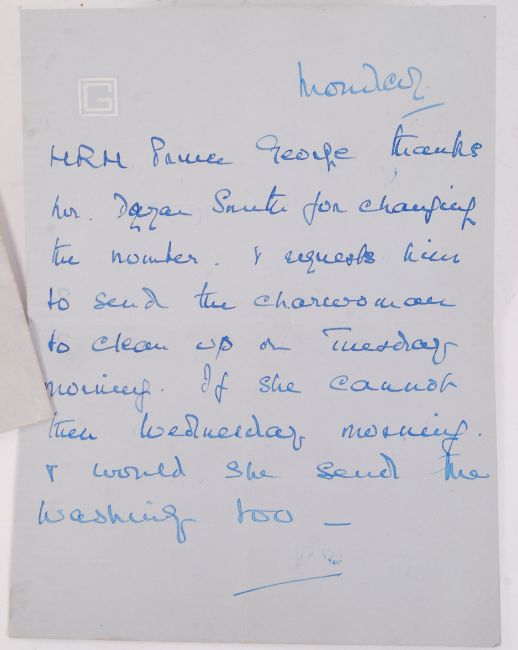 G
Monday
HRH Prince George thanks
Mr. Smith for changing
the number. & requests him
to send the charwoman
to clean up on Tuesday
morning. If she cannot
then Wednesday morning.
& would she send the
washing too —